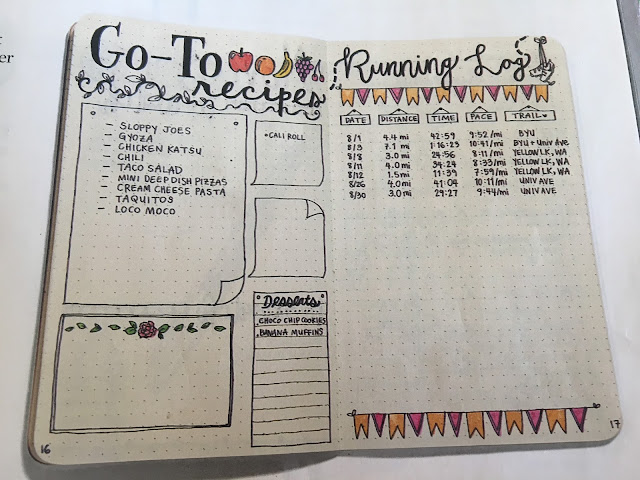 er
Go-To
recipes
- SLOPPY JOES
- GYOZA
- CHICKEN KATSU
- CHILI
- TACO SALAD
- MINI DEEP DISH PIZZAS
- CREAM CHEESE PASTA
- TAQUITOS
- LOCO MOCO
•CALI ROLL
Desserts
CHOCO CHIP COOKIES
BANANA MUFFINS
16
Running Log
DATE DISTANCE TIME PACE TRAIL
8/1 4.4 mi 42:59 9:52/mi BYU
8/3 7.1 mi 1:16:23 10:41/mi BYU + UNIV AVE
8/8 3.0 mi 24:56 8:11/mi YELLOW LK, WA
8/11 4.0 mi 34:24 8:33/mi YELLOW LK, WA
8/12 1.5 mi 11:39 7:59/mi YELLOW LK, WA
8/26 4.0 mi 41:04 10:19/mi UNIV AVE
8/30 3.0 mi 29:27 9:44/mi UNIV AVE
17